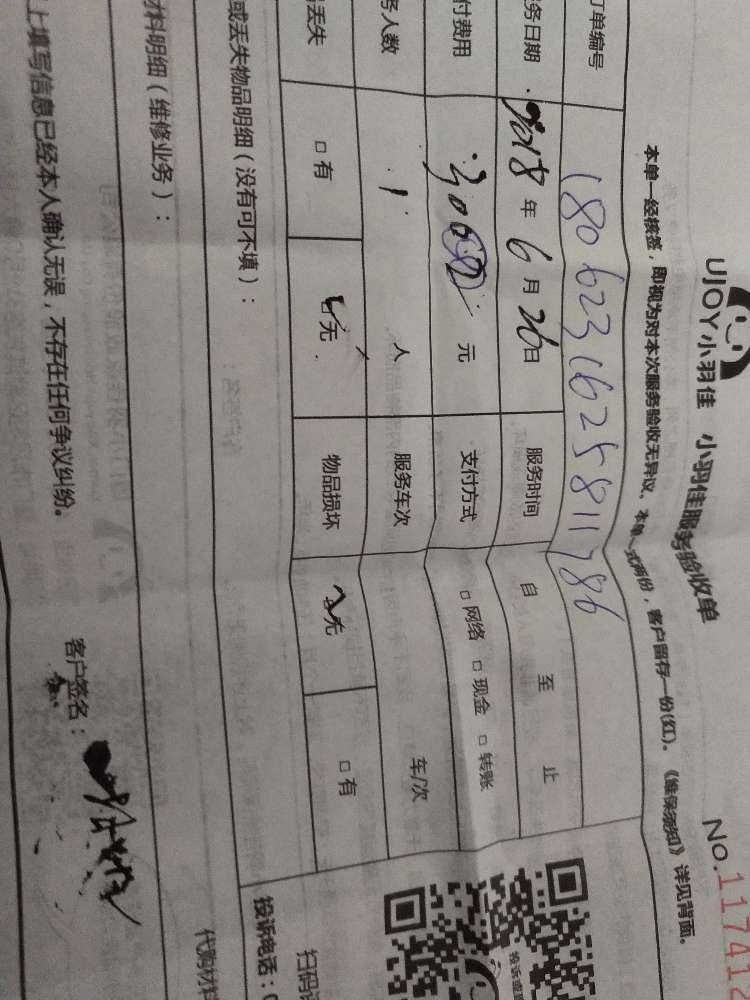 No.117412
UJOY小羽佳 小羽佳服务验收单
本单一经核签，即视为对本次服务验收无异议。本单一式两份，客户留存一份(红)。《维保须知》详见背面。
订单编号 1806231625811786
务日期 2018年6月26日 服务时间 自 至 止
付费用 元 支付方式 □网络 □现金 □转账
务人数 1 人 服务车次 车/次
丢失 □有 □无 物品损坏 □无 □有
扫码
或丢失物品明细（没有可不填）： 投诉电话：
材料明细（维修业务）： 代购材料
上填写信息已经本人确认无误，不存在任何争议纠纷。 客户签名：